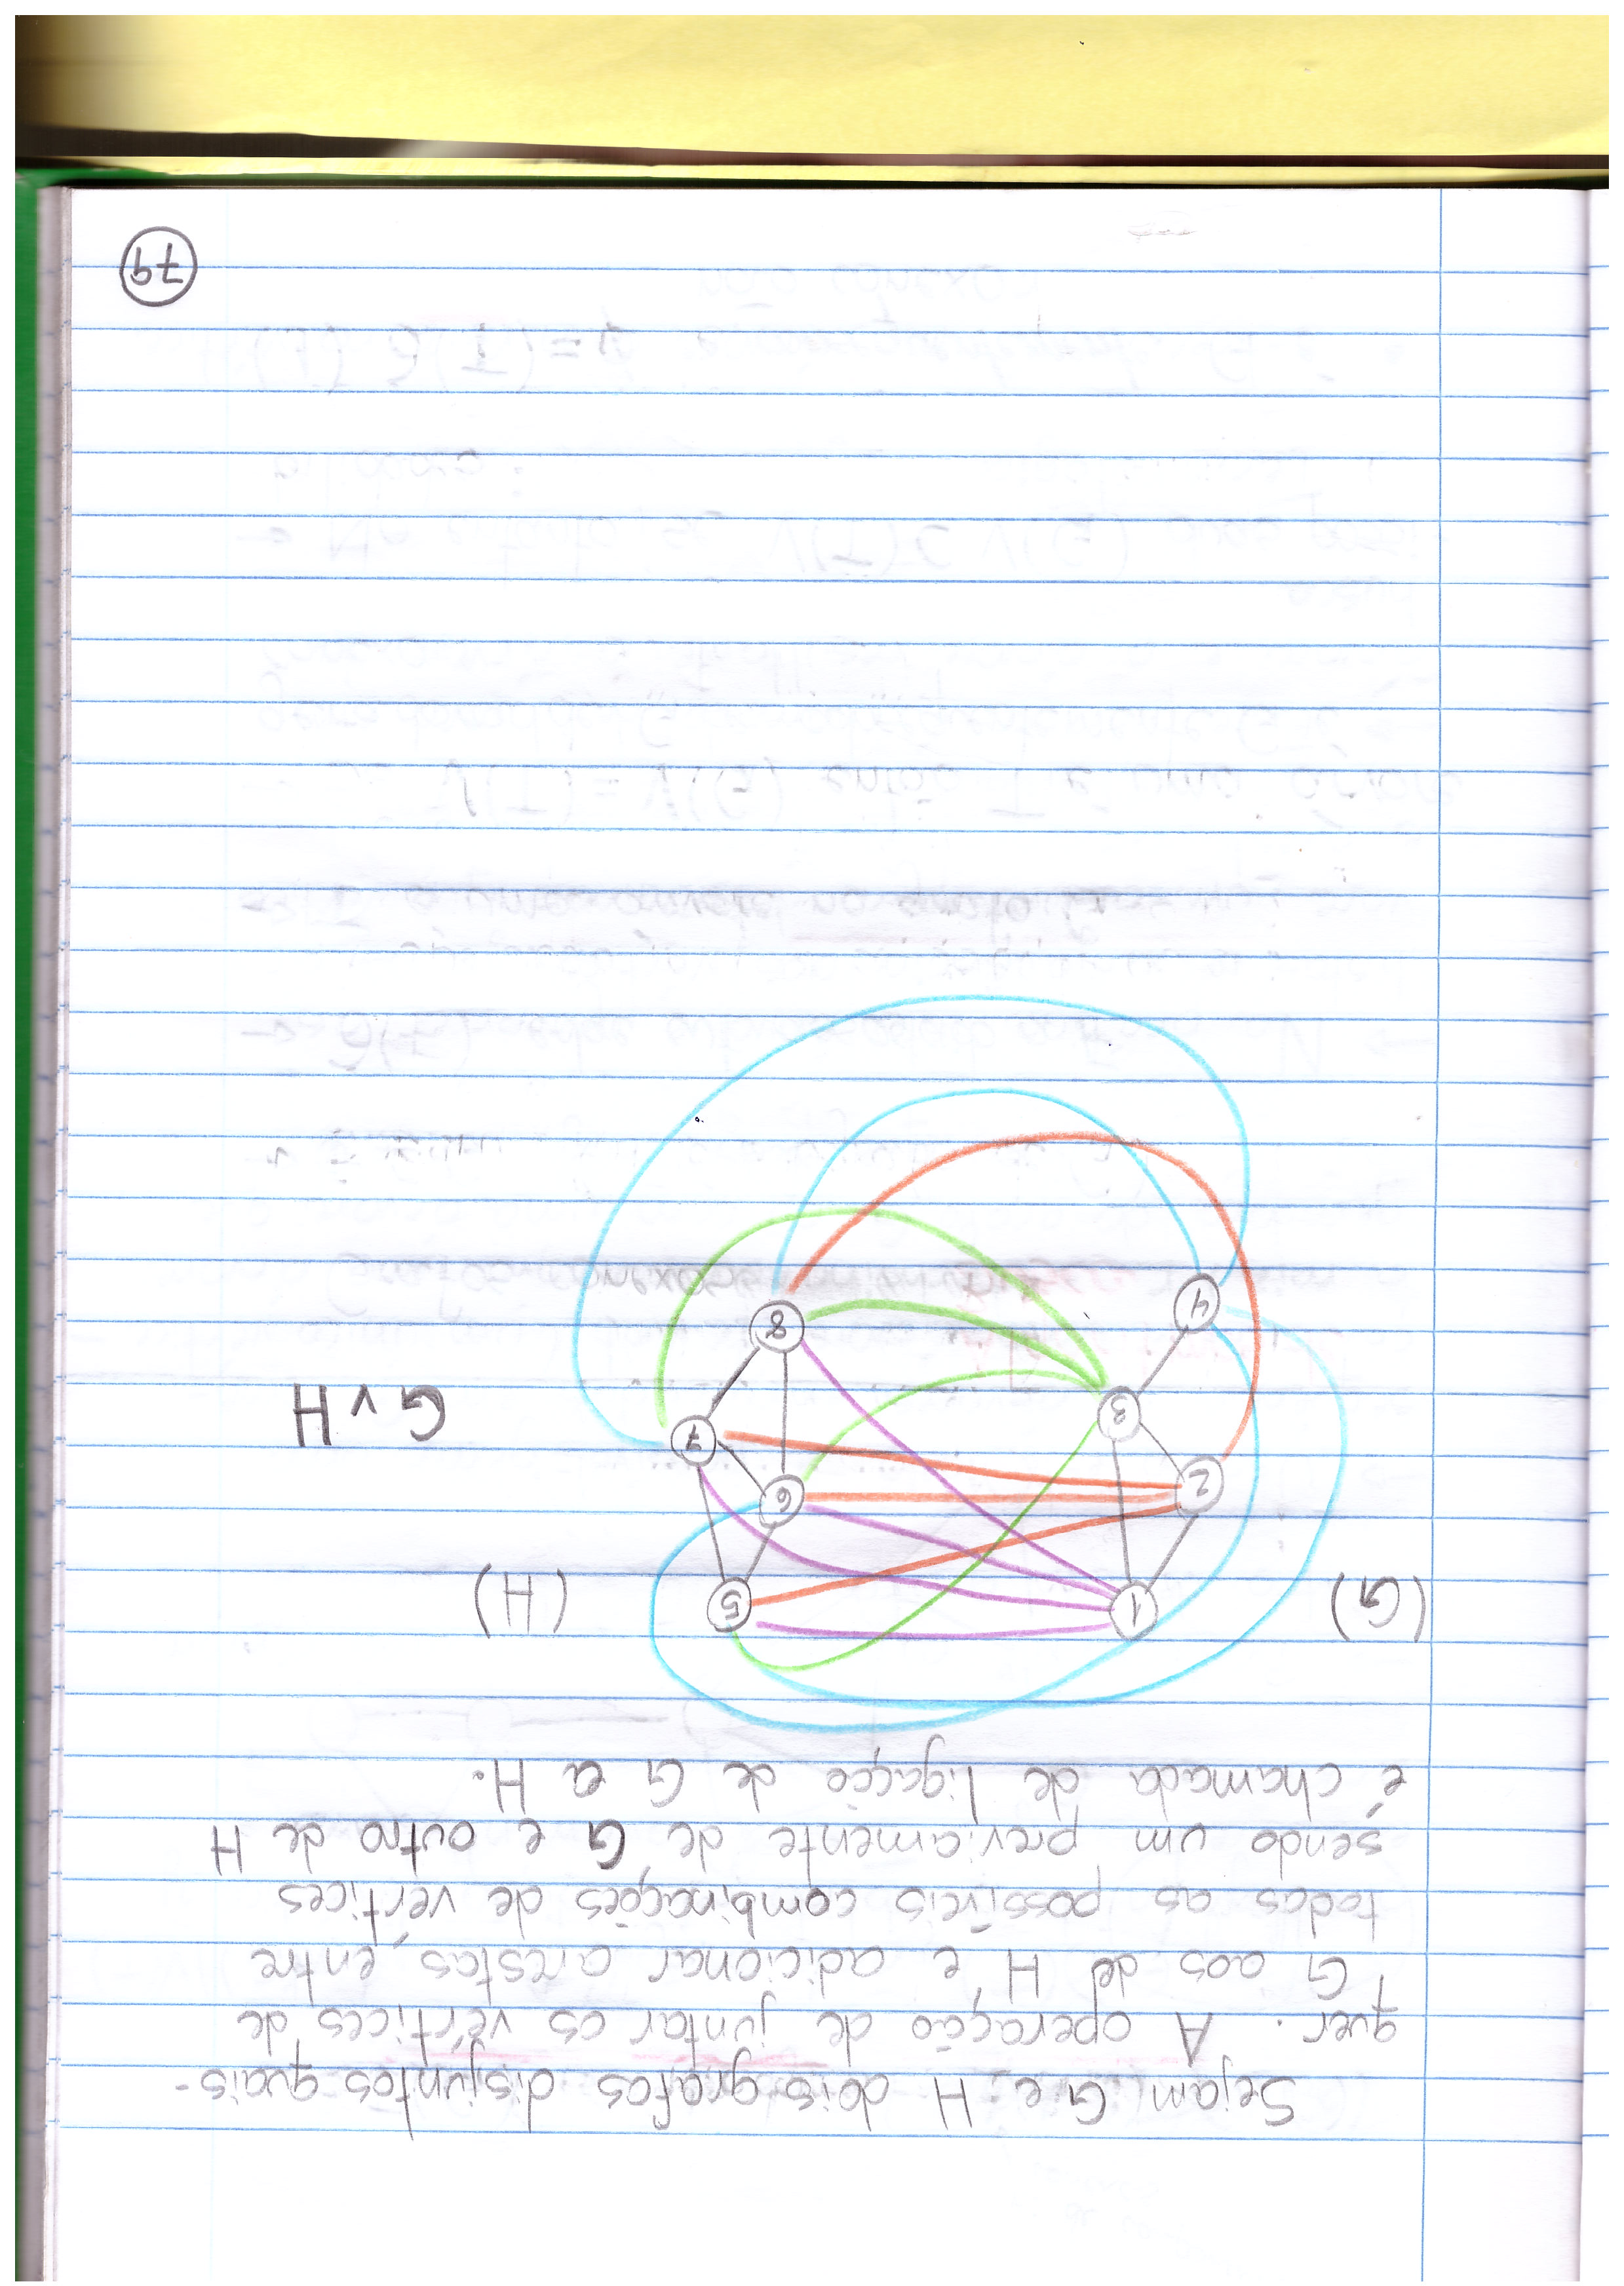 Sejam G e H dois grafos disjuntos quais-
quer. A operação de juntar os vértices de
G aos de H e adicionar arestas entre
todas as possíveis combinações de vértices
sendo um previamente de G e outro de H
é chamada de ligação de G a H.
(G) 1 5 (H)
2 6
3 7 G v H
4 8
79